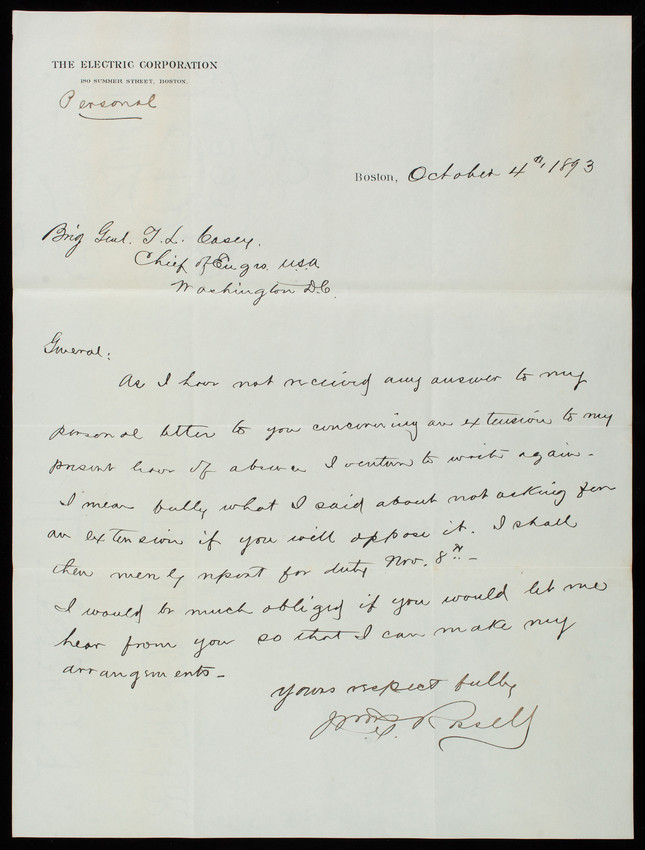 THE ELECTRIC CORPORATION
180 SUMMER STREET, BOSTON.
Personal
Boston, October 4th, 1893
Brig Genl. T. L. Casey.
Chief of Engrs. U.S.A
Washington D.C.
General:
As I have not received any answer to my
personal letter to you concerning an extension to my
present leave of absence I venture to write again.
I mean fully what I said about not asking for
an extension if you will oppose it. I shall
then merely report for duty Nov. 8th.
I would be much obliged if you would let me
hear from you so that I can make my
arrangements.
Yours respectfully
Rossell